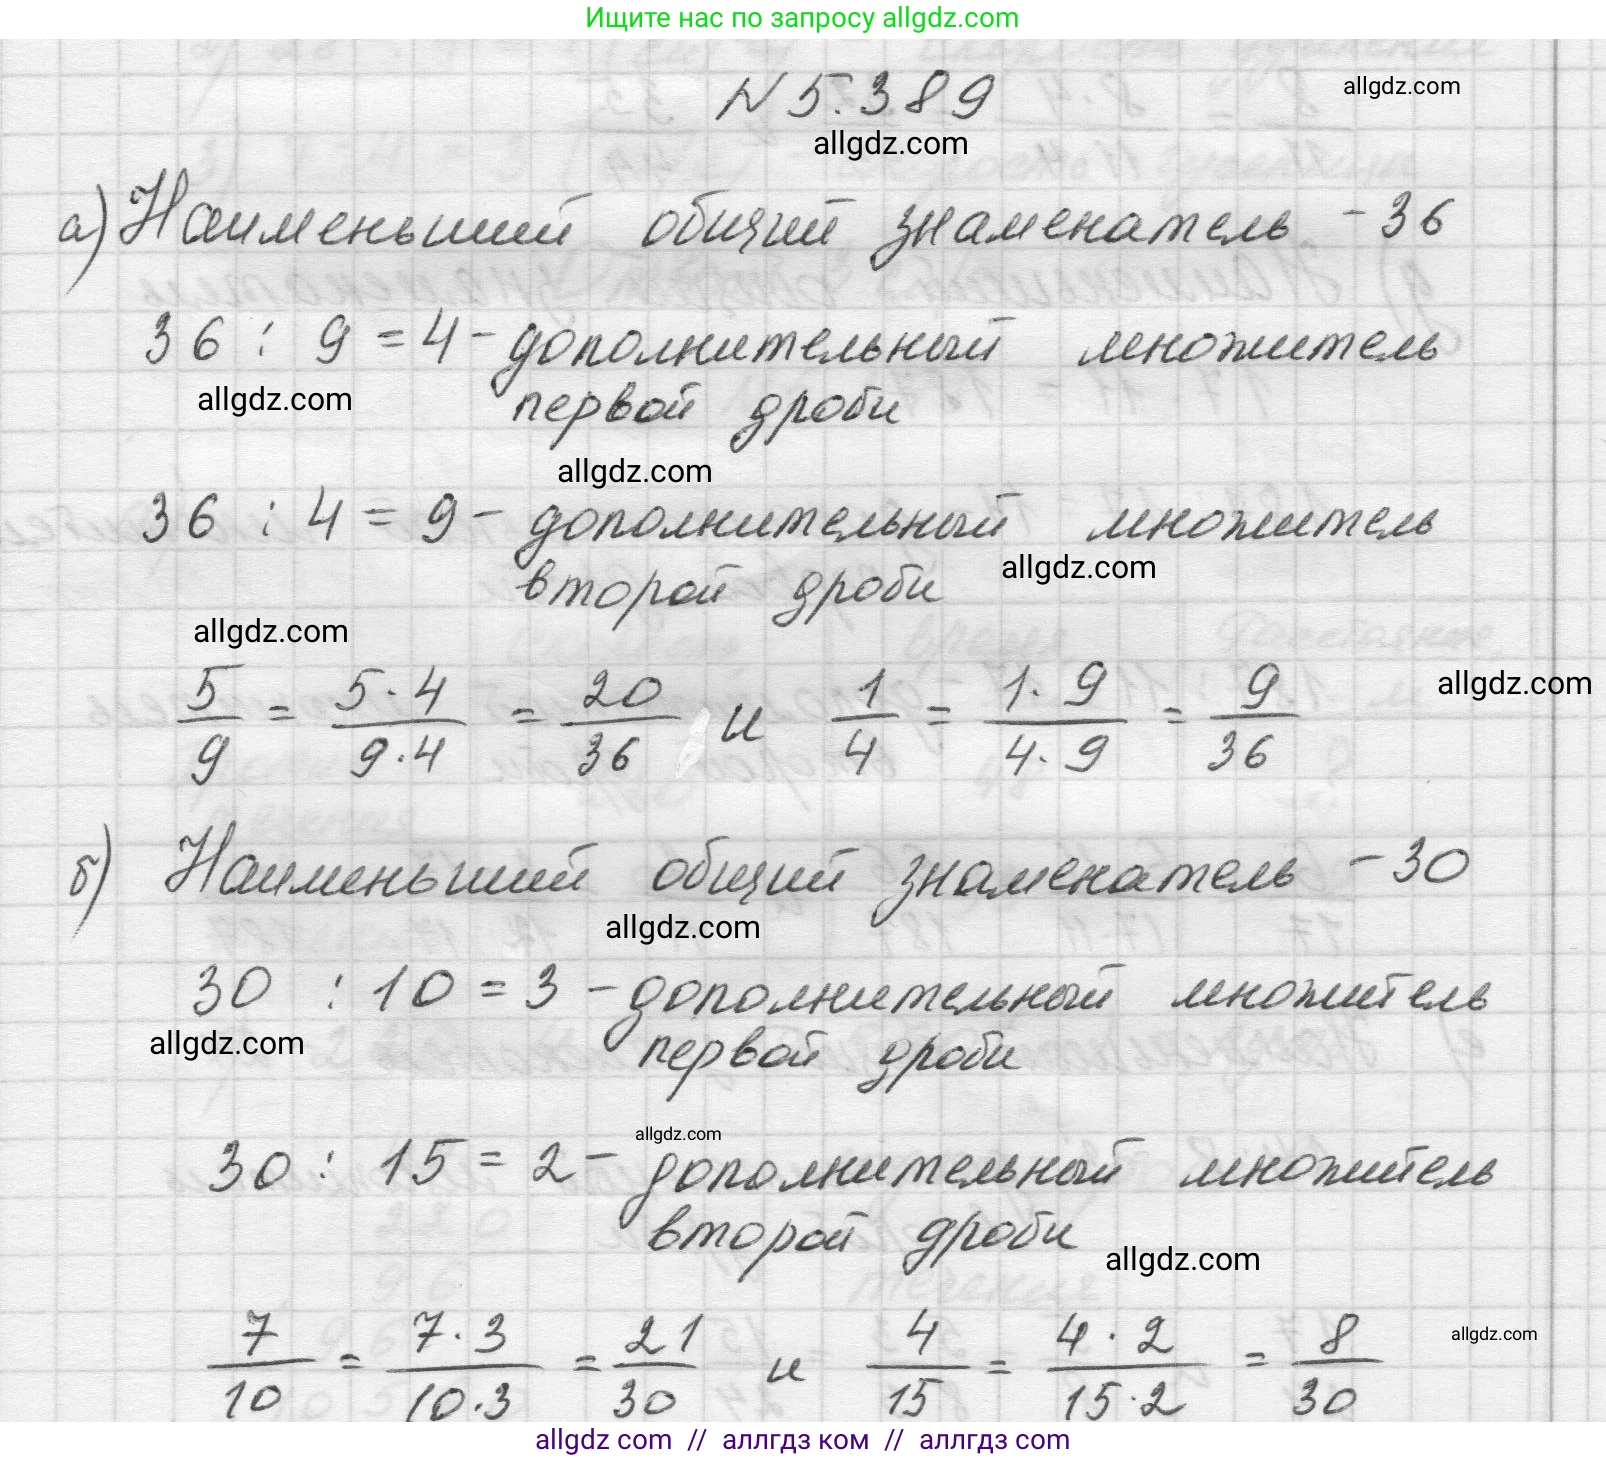 Ищите нас по запросу allgdz.com
N 5.389
allgdz.com
allgdz.com
а) Наименьший общий знаменатель - 36
36 : 9 = 4 - дополнительный множитель
allgdz.com
первой дроби
allgdz.com
36 : 4 = 9 - дополнительный множитель
второй дроби
allgdz.com
allgdz.com
5/9 = 5·4/9·4 = 20/36 и 1/4 = 1·9/4·9 = 9/36
allgdz.com
б) Наименьший общий знаменатель - 30
allgdz.com
30 : 10 = 3 - дополнительный множитель
allgdz.com
первой дроби
allgdz.com
30 : 15 = 2 - дополнительный множитель
второй дроби
allgdz.com
7/10 = 7·3/10·3 = 21/30 и 4/15 = 4·2/15·2 = 8/30
allgdz.com
allgdz com // аллгдз ком // аллгдз com